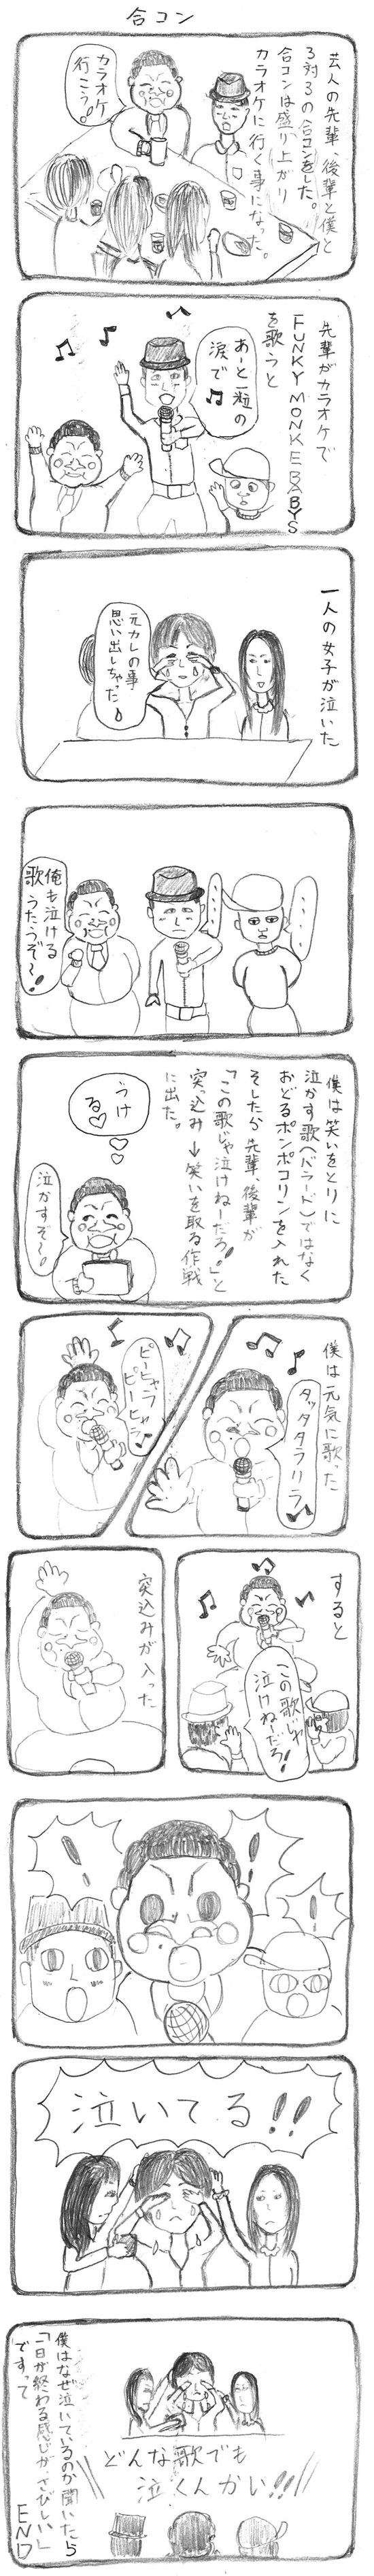 合コン
芸人の先輩、後輩と僕と
3対3の合コンをした。
合コンは盛り上がり
カラオケに行く事になった。
カラオケ
行こう!
先輩がカラオケで
FUNKY MONKEY BABYS
を歌うと
あーと一粒の
涙で♪
一人の女子が泣いた
元カレの事
思い出しちゃった
・・・・
・・・・
俺も泣ける
歌うたうぞ〜!
僕は笑いをとりに
泣かす歌(バラード)ではなく
おどるポンポコリンを入れた
そしたら先輩、後輩が
「この歌じゃ泣けねーだろ!」と
突っ込み→笑いを取る作戦
に出た。
うけ
る♡
泣かすぞ〜!
僕は元気に歌った
タッタタラリラ♪
ピーヒャラ
ピーヒャラ♪
すると
この歌じゃ
泣けねーだろ!
突込みが入った
!
!
!
泣いてる!!
どんな歌でも
泣くんかい!!!
僕はなぜ泣いているのか聞いたら
「一日が終わる感じが、さびしい」
ですって
END